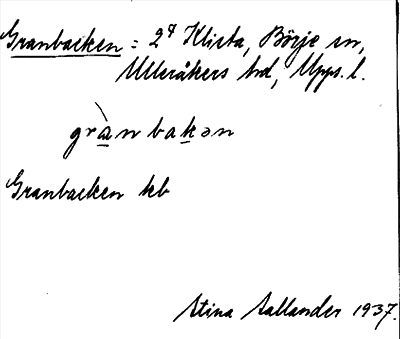 Granbacken = 2⁴ Klista, Börje sn,
Ulleråkers hd, Upps. l.
grànbakən
Granbacken kb
Stina Sallander 1937.